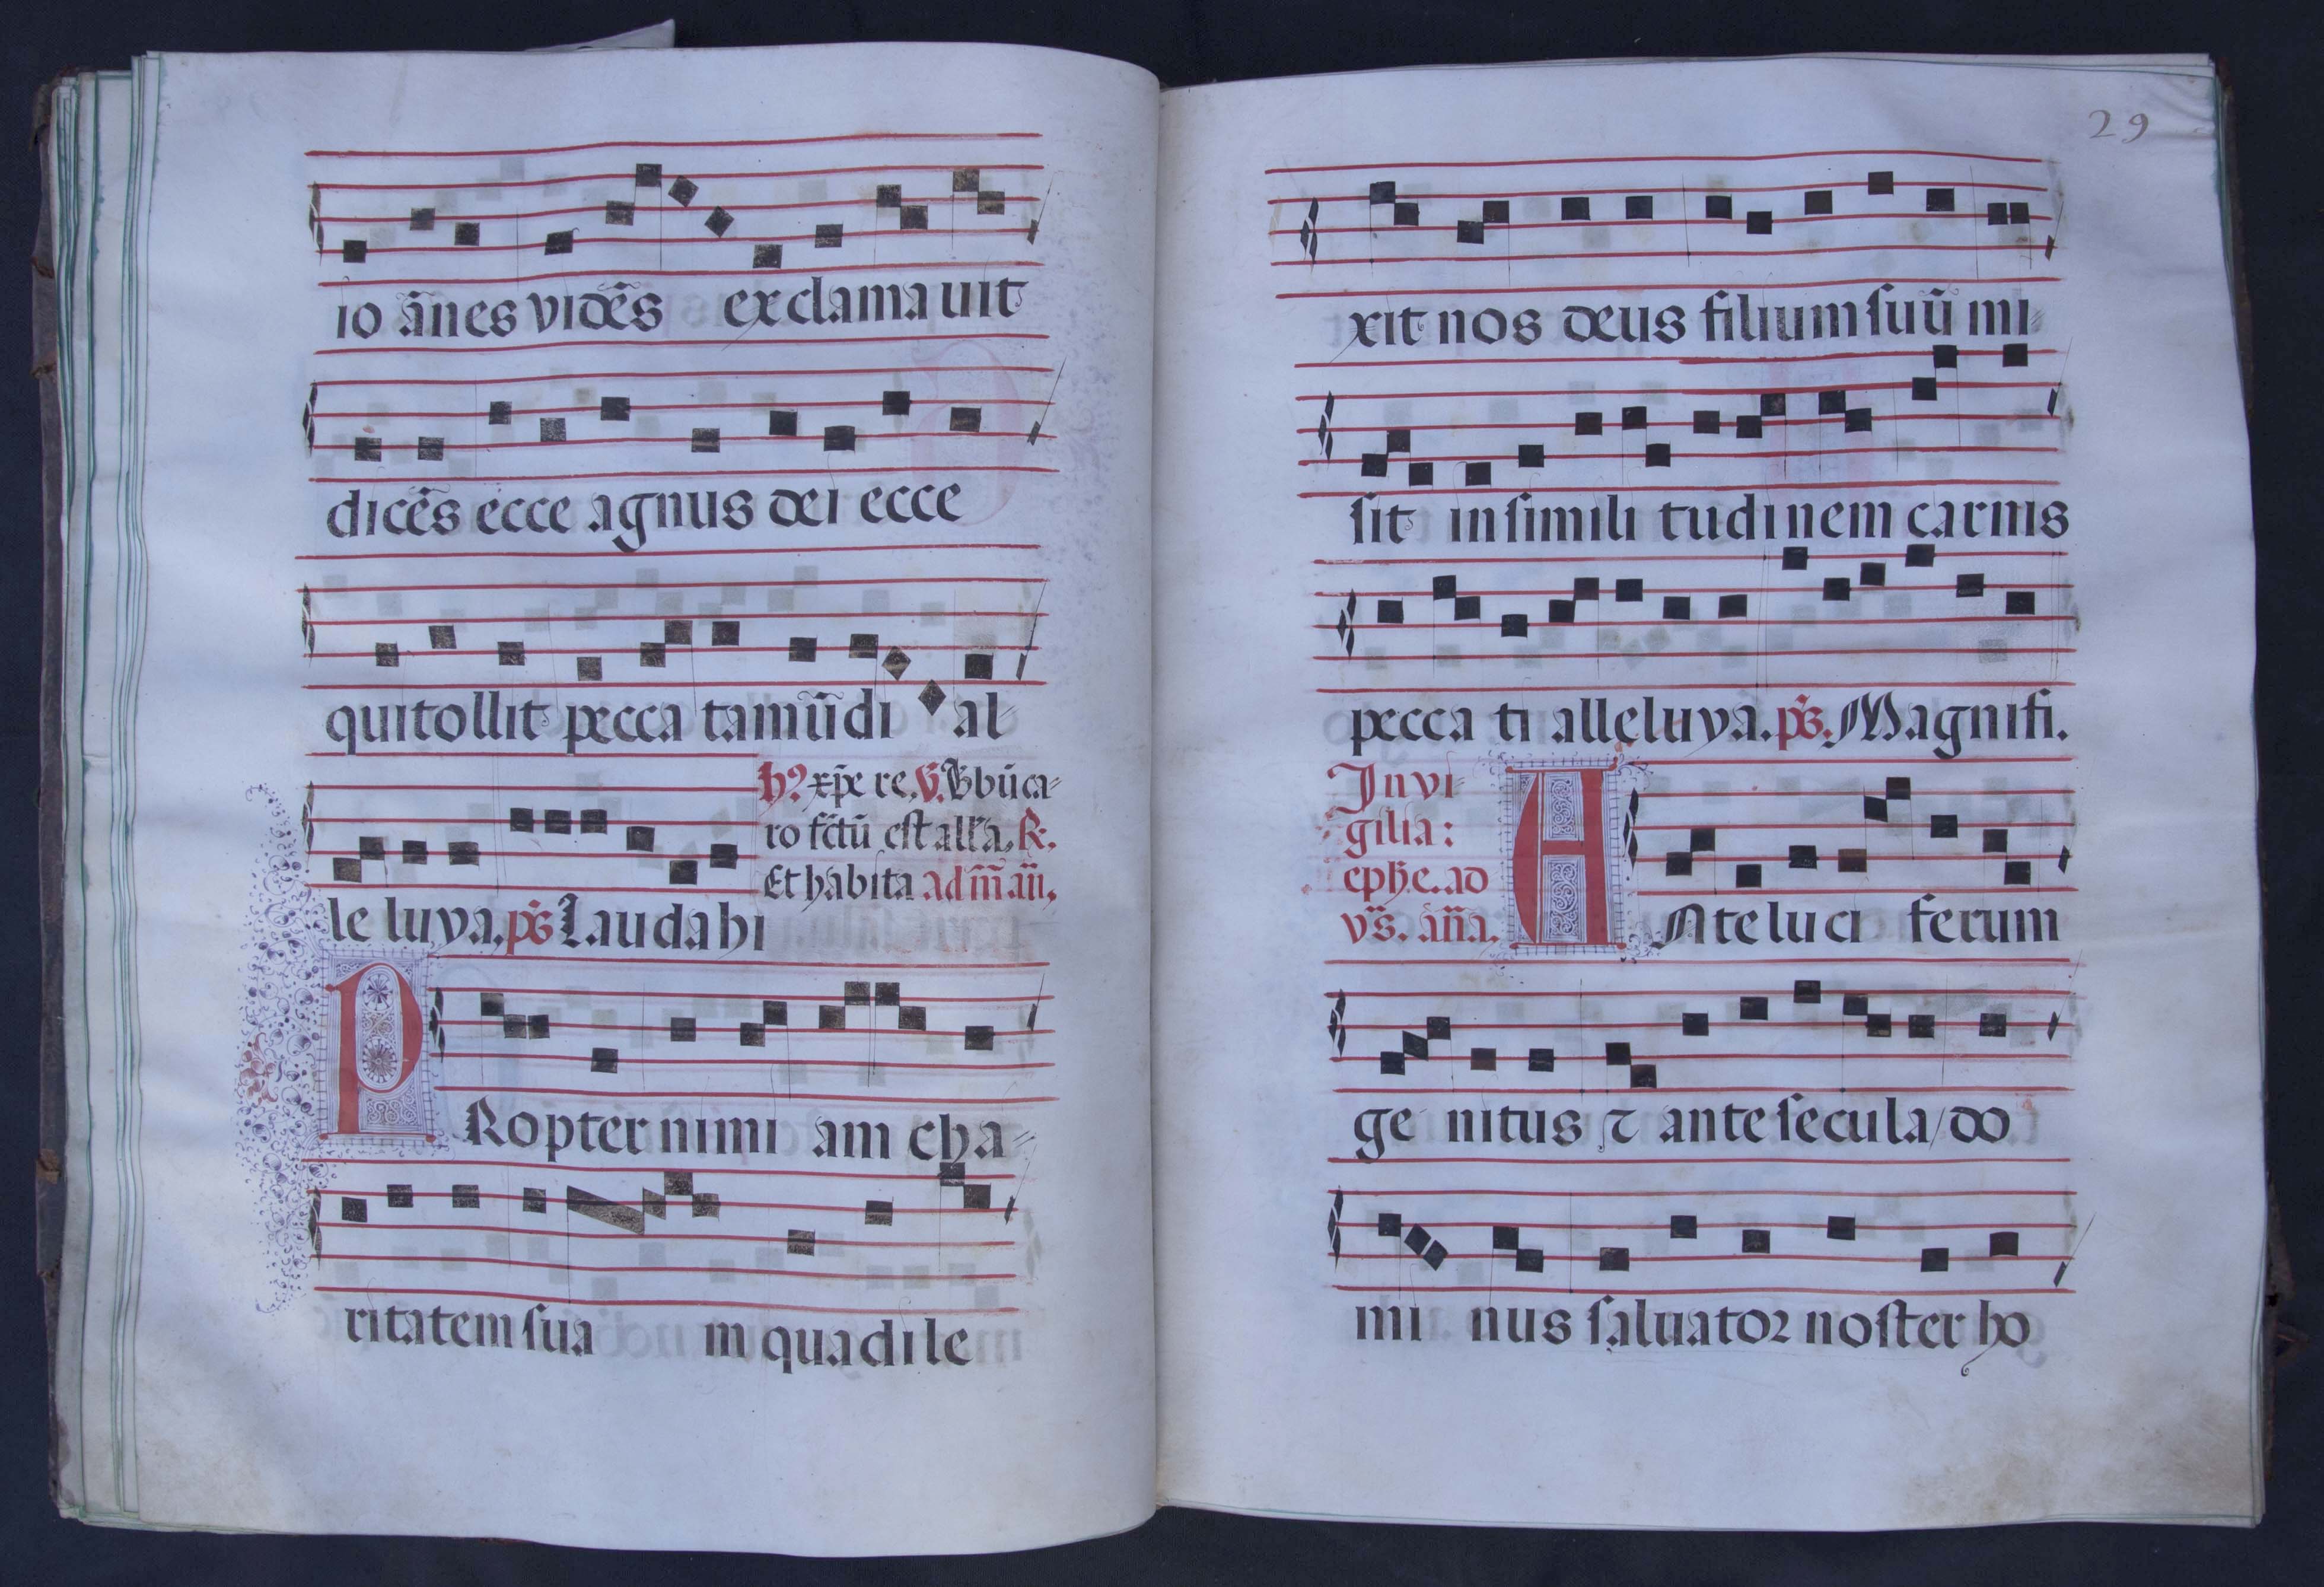 io ãnes vidẽs exclamauit
dicẽs ecce agnus dei ecce
quitollit pecca tamũdi al-
h? xp̃e re. V. Vbũ ca-
ro fc̃tũ est all'a. R.
Et habita ad m̃ añ.
le luya. ps̃ Laudabi
PRopter nimi am cha-
ritatem sua m qua dile
29
xit nos deus filium suũ mi-
sit in simili tudinem carnis
pecca ti alleluya. ps̃. Magnifi.
In vi-
gilia:
eph̃e. ad
vs̃. añа.
ANte luci ferum
ge nitus ⁊ ante secula/do
mi nus saluator noster ho